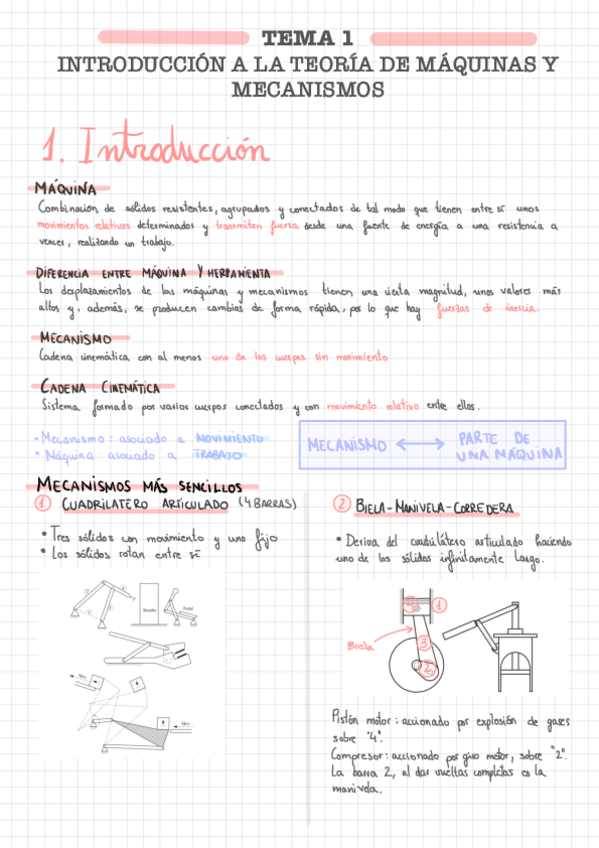 TEMA 1
INTRODUCCIÓN A LA TEORÍA DE MÁQUINAS Y
MECANISMOS
1. Introducción
MÁQUINA
Combinación de sólidos resistentes, agrupados y conectados de tal modo que tienen entre sí unos
movimientos relativos determinados y transmiten fuerza desde una fuente de energía a una resistencia a
vencer, realizando un trabajo.
DIFERENCIA ENTRE MÁQUINA Y HERRAMIENTA
Los desplazamientos de las máquinas y mecanismos tienen una cierta magnitud, unos valores más
altos y, además, se producen cambios de forma rápida, por lo que hay fuerzas de inercia.
MECANISMO
Cadena cinemática con al menos uno de los cuerpos sin movimiento
CADENA CINEMÁTICA
Sistema formado por varios cuerpos conectados y con movimiento relativo entre ellos.
• Mecanismo: asociado a MOVIMIENTO
• Máquina: asociado a TRABAJO
MECANISMO ⟷ PARTE DE
UNA MÁQUINA
MECANISMOS MÁS SENCILLOS
1 CUADRILATERO ARTICULADO (4 BARRAS)
• Tres sólidos con movimiento y uno fijo
• Los sólidos rotan entre sí
2 BIELA-MANIVELA-CORREDERA
• Deriva del cuadrilátero articulado haciendo
uno de los sólidos infinitamente largo.
Bomba
Pedal
1
3
2
Biela
Pistón motor: accionado por explosión de gases
sobre "4".
Compresor: accionado por giro motor, sobre "2".
La barra 2, al dar vueltas completas es la
manivela.